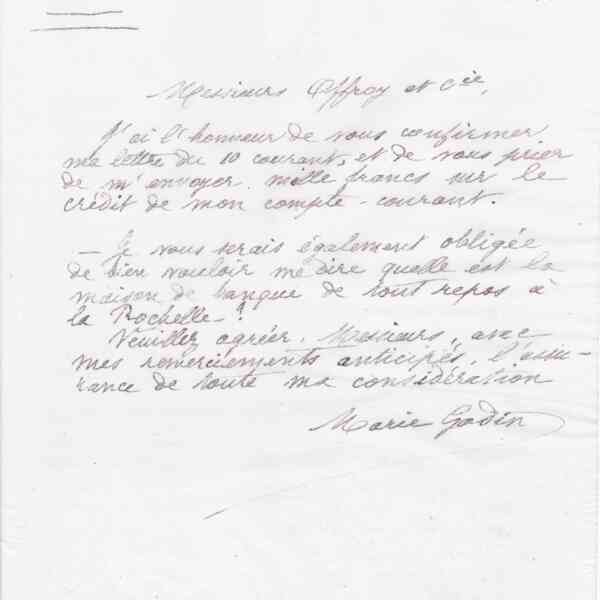 Messieurs Offroy et Cie,
J'ai l'honneur de vous confirmer
ma lettre du 10 courant, et de vous prier
de m'envoyer mille francs sur le
crédit de mon compte-courant.
— Je vous serais également obligée
de bien vouloir me dire quelle est la
maison de banque de tout repos à
la Rochelle - ?
Veuillez agréer, Messieurs, avec
mes remerciements anticipés, l'assu-
rance de toute ma considération
Marie Godin